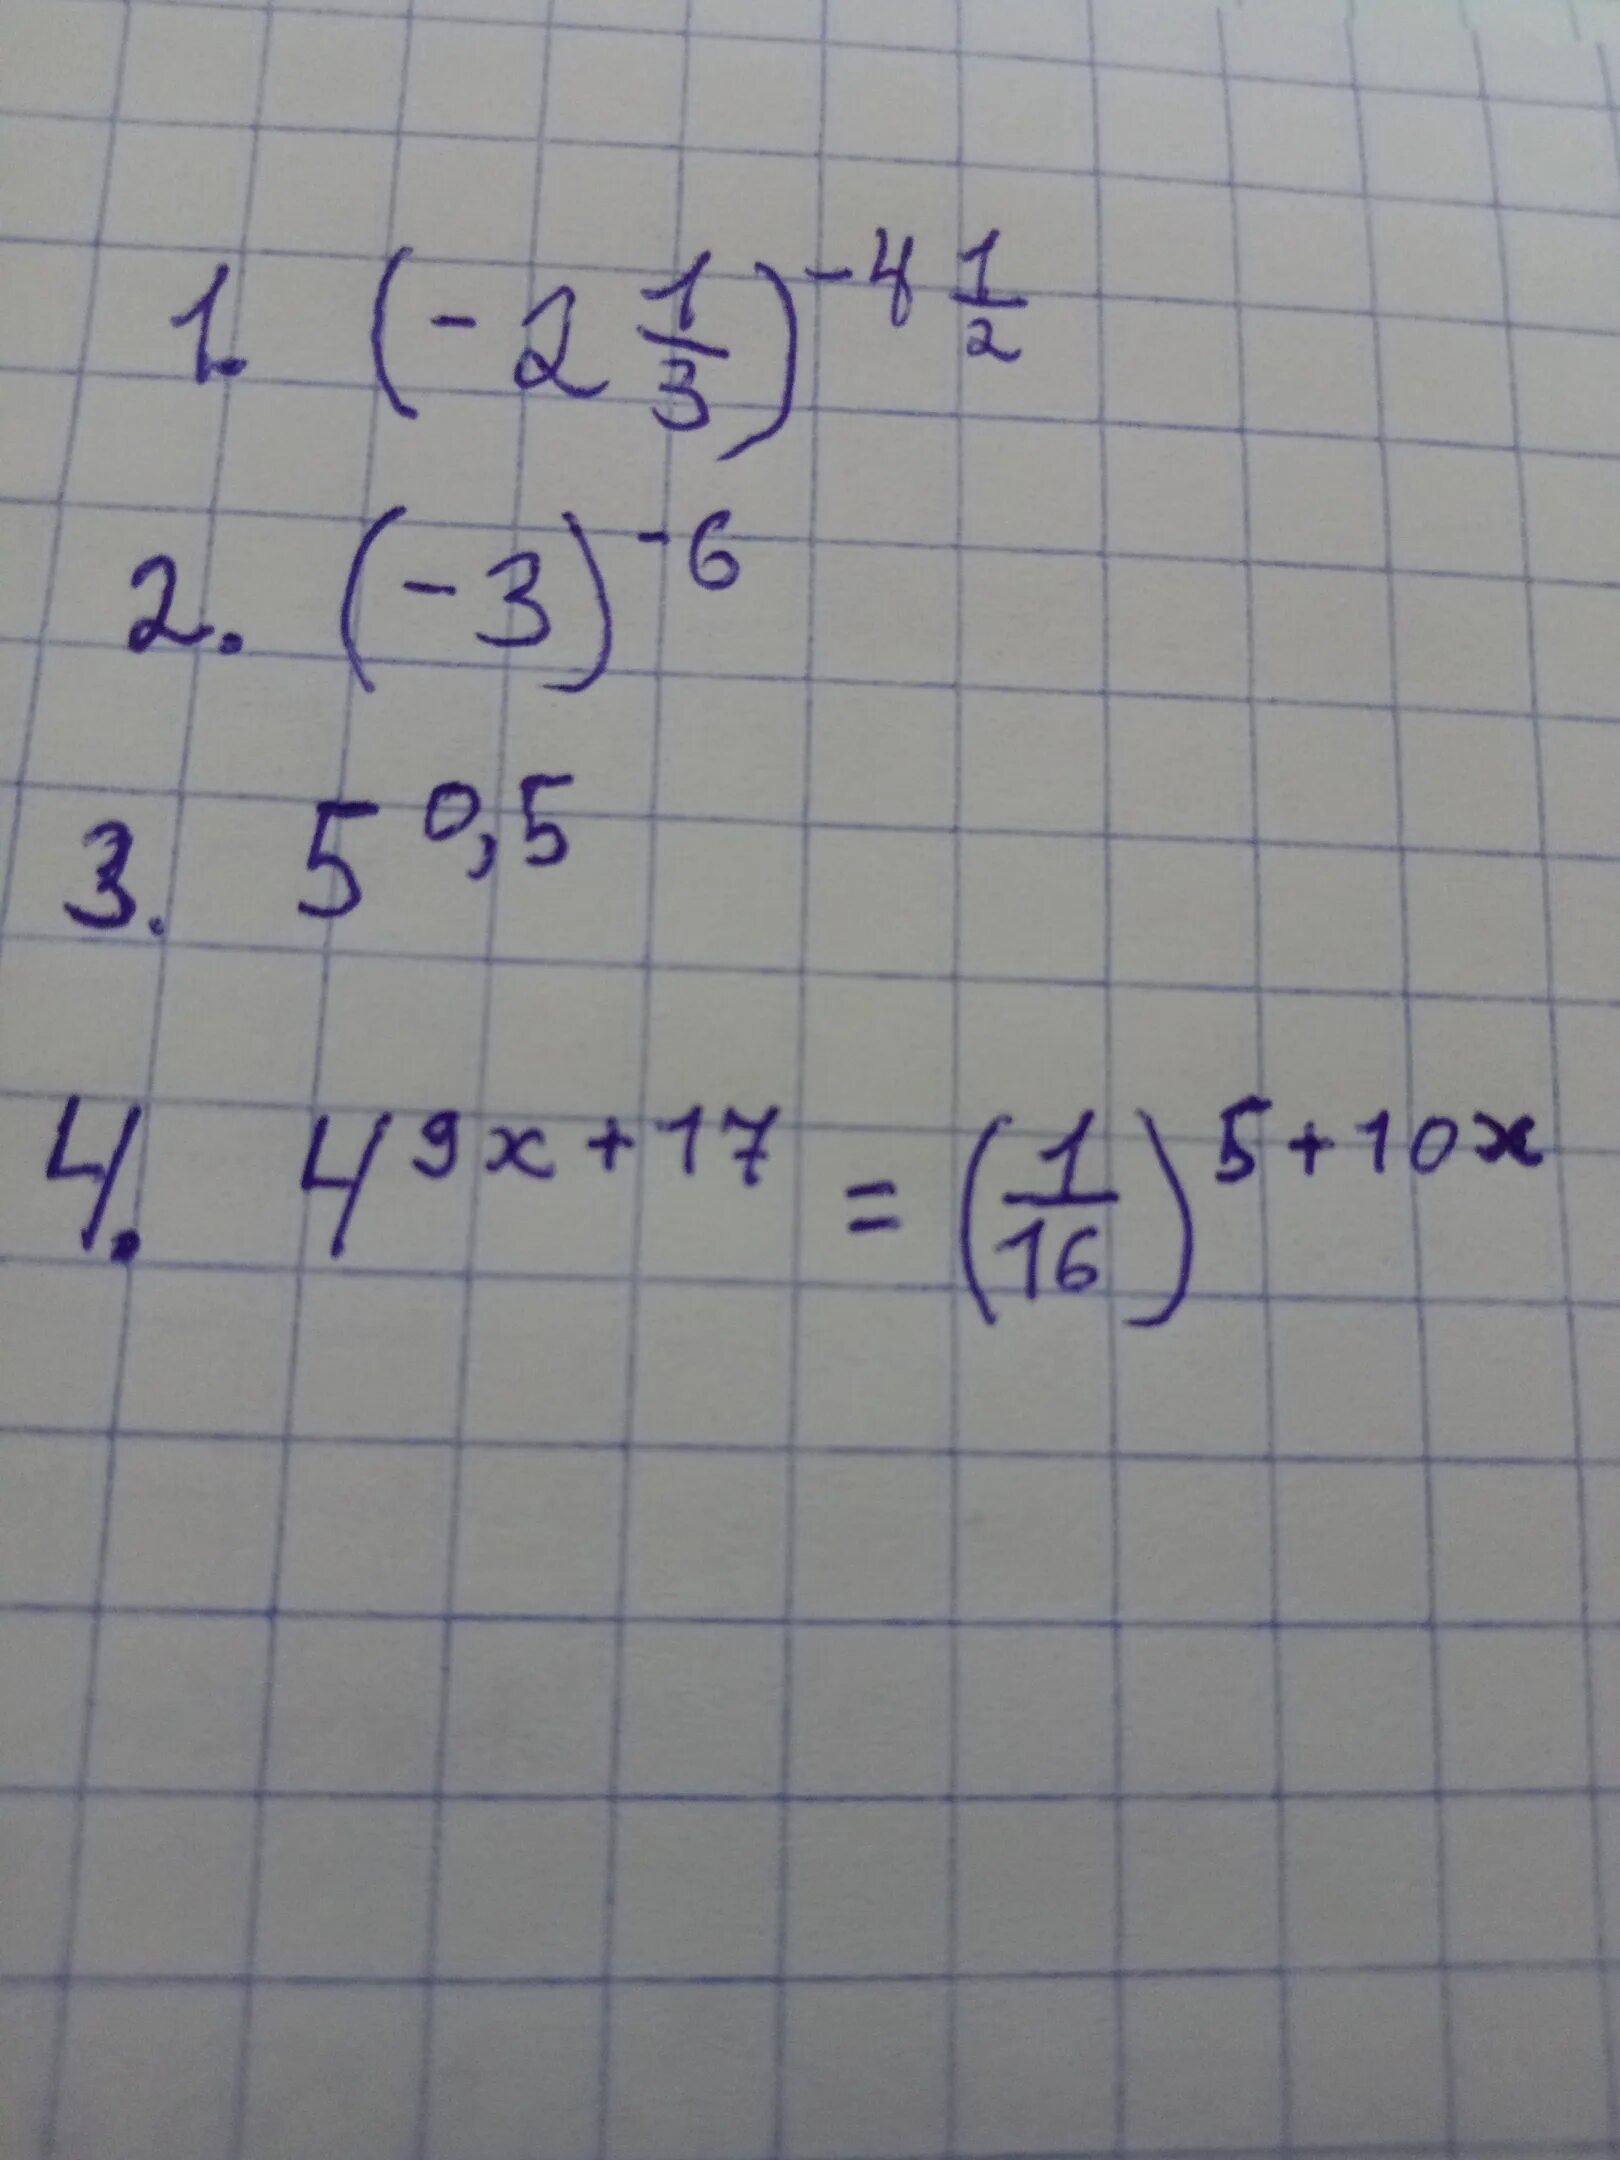 1. (-2 1/3)^-4 1/2
2. (-3)^-6
3. 5^0,5
4. 4^9x+17 = (1/16)^5+10x